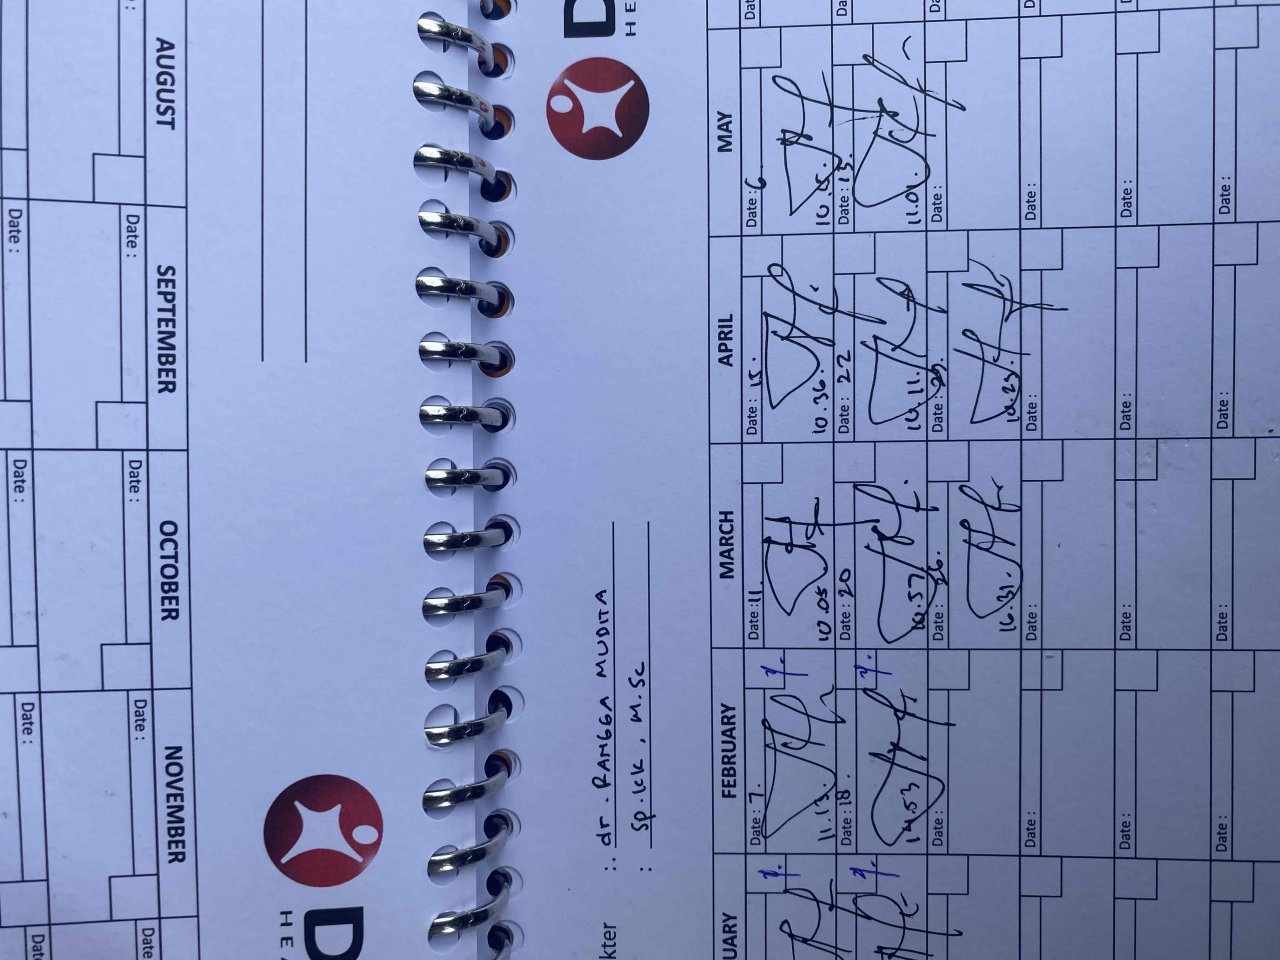 kter : dr. RANGGA MUDITA
: Sp.KK, M.Sc
UARY
FEBRUARY
MARCH
APRIL
MAY
Date : 7.
Date : 11.
Date : 15.
Date : 6
11.13.
10.05
10.36.
10.15.
Date : 18.
Date : 20
Date : 22
Date : 13.
14.53
10.57
10.11.
11.01.
Date :
Date : 26.
Date : 29.
Date :
16.31.
10.23.
Date :
Date :
Date :
Date :
Date :
Date :
Date :
Date :
Date :
Date :
Date :
Date :
D
HE
AUGUST
SEPTEMBER
OCTOBER
NOVEMBER
Date :
Date :
Date :
Date
Date :
Date :
Date :
Dat
D
HEA